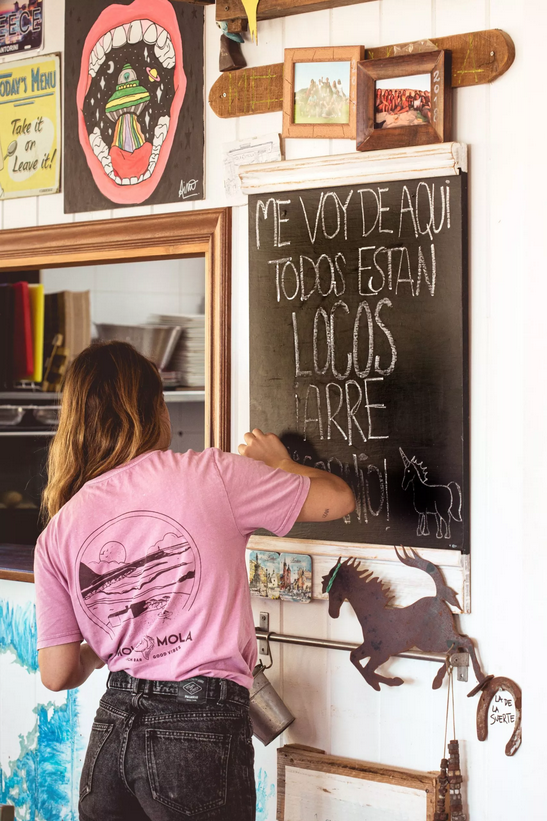 TODAY'S MENU
Take it
or
Leave it!
Aino
2018
ME VOY DE AQUI
TODOS ESTAN
LOCOS
¡ARRE
MOLA
GOOD VIBES
LA DE
LA
SUERTE